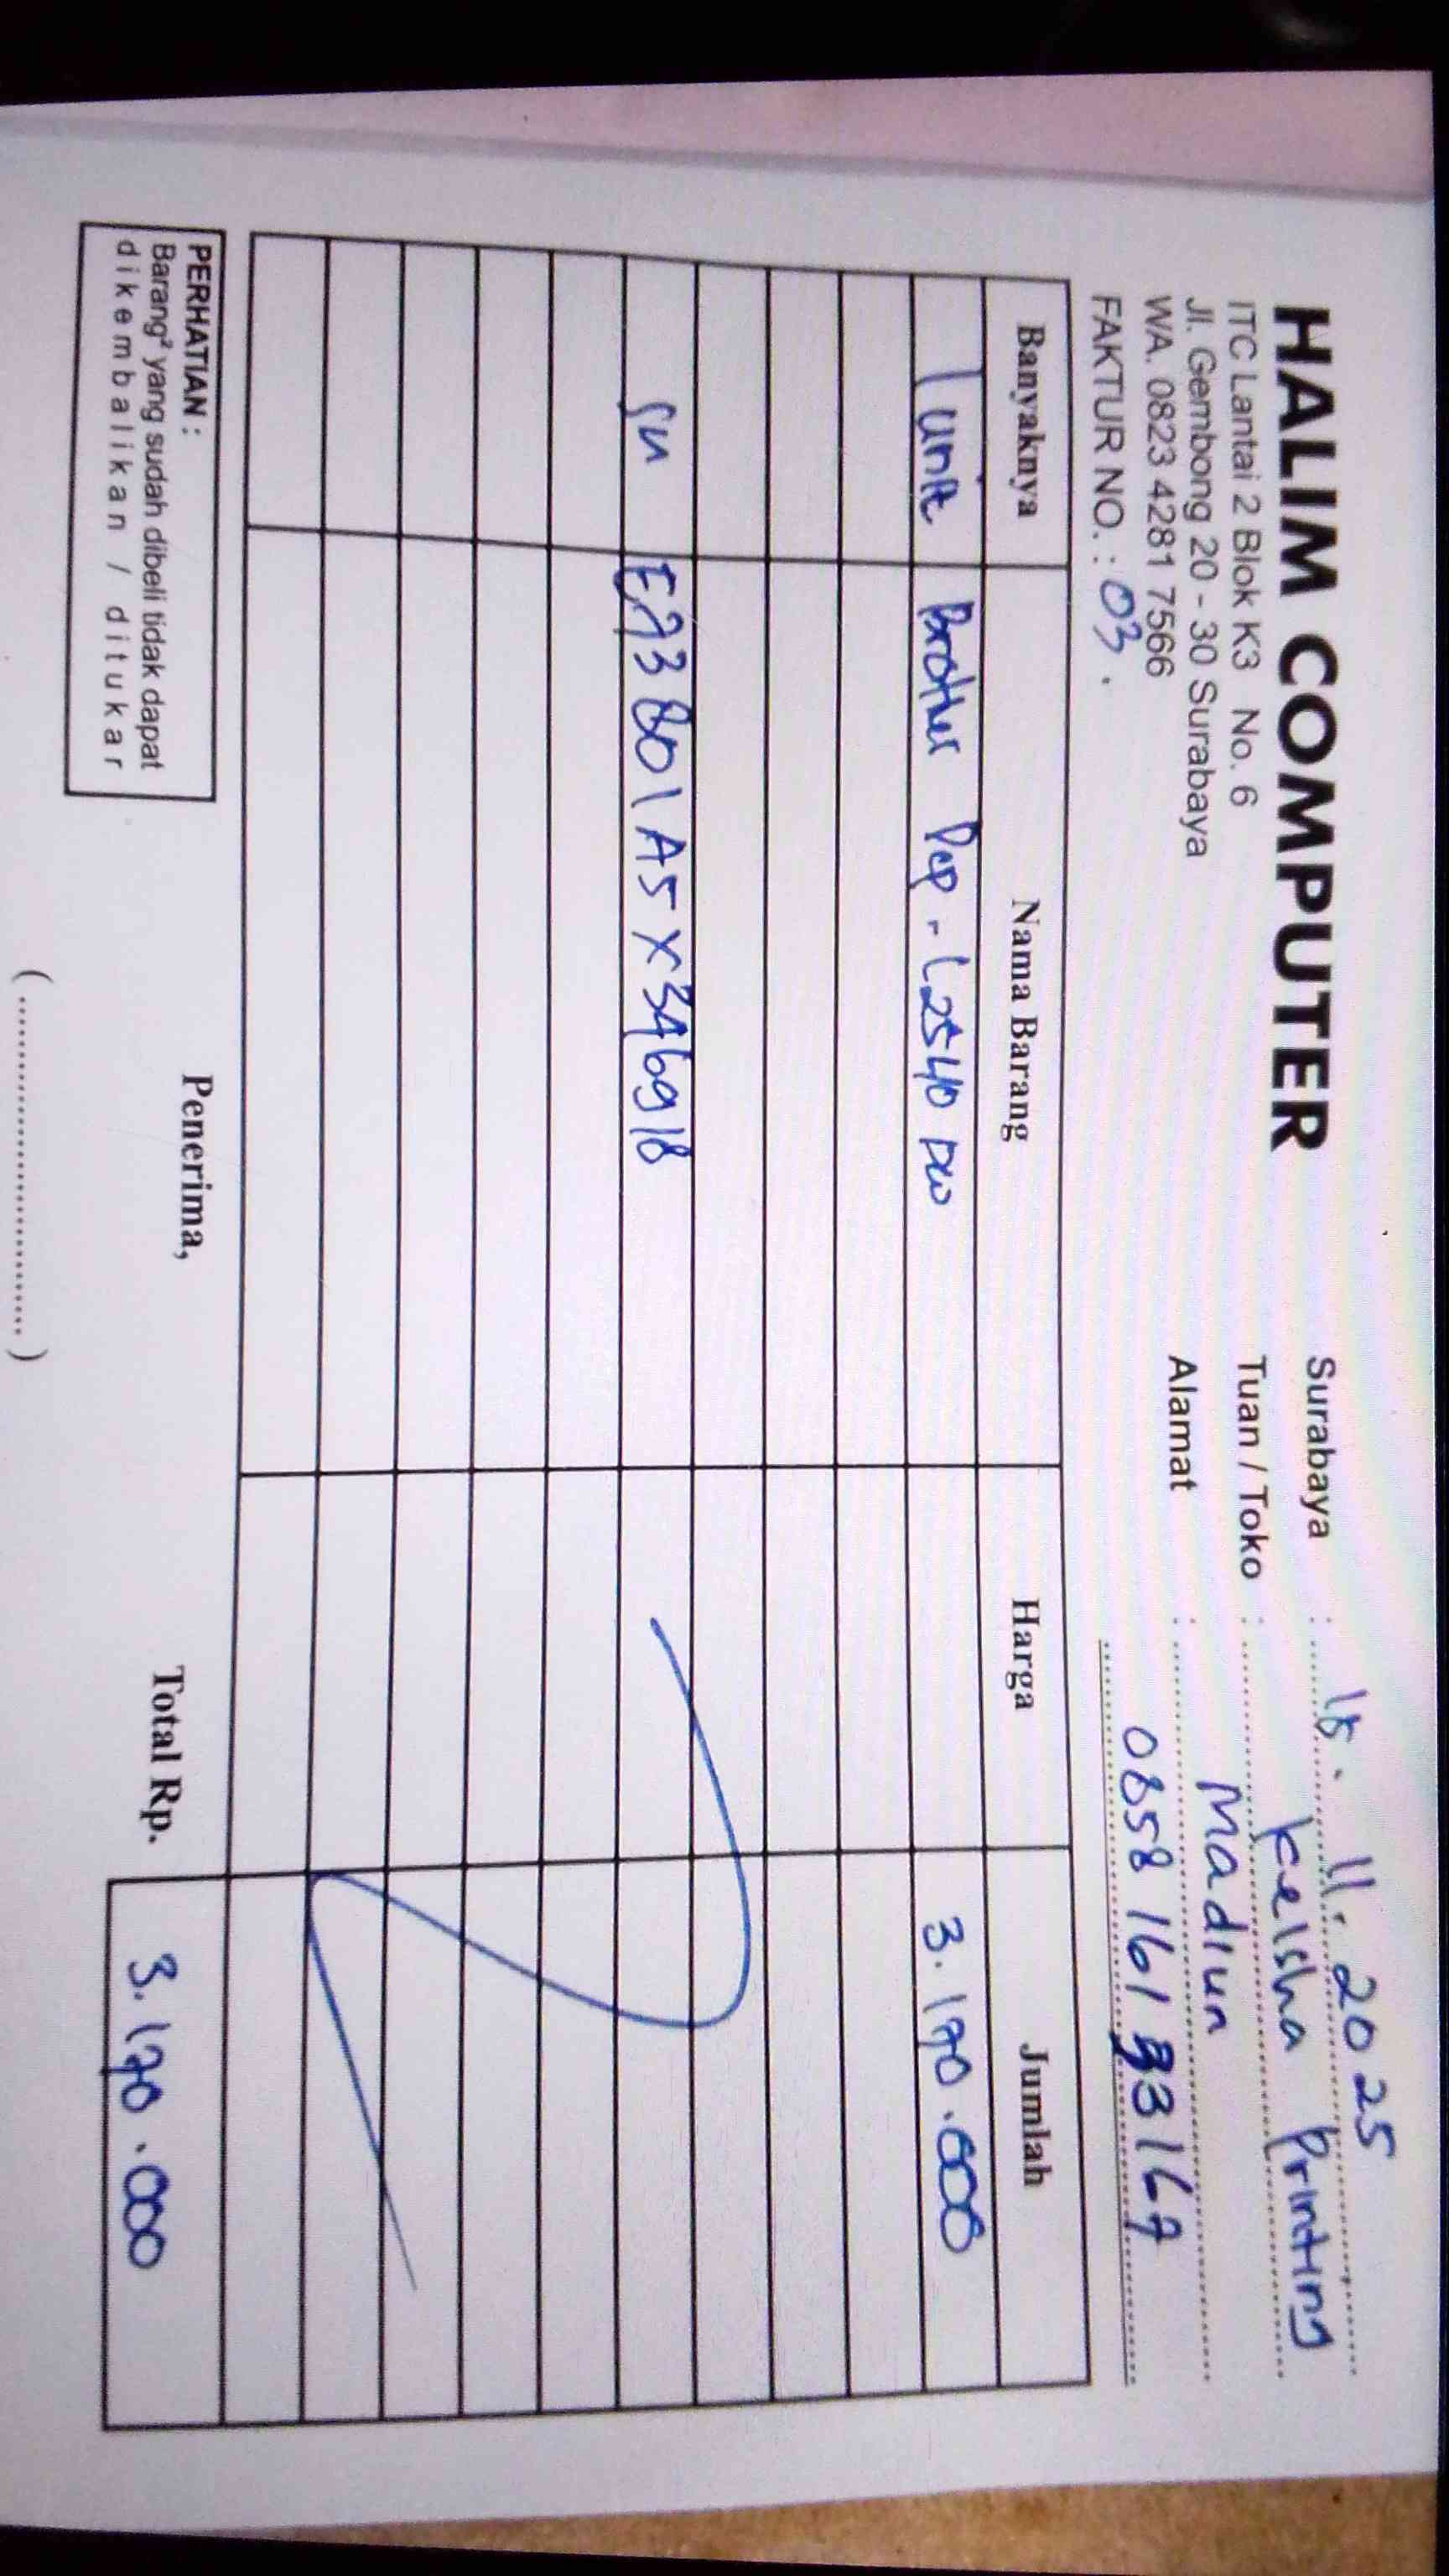 HALIM COMPUTER
ITC Lantai 2 Blok K3 No. 6
Jl. Gembong 20 - 30 Surabaya
WA. 0823 4281 7566
FAKTUR NO. : 03.
Surabaya : 18. 11. 2025
Tuan / Toko : Keisha Printing
Alamat : Madiun
0858 161 33167
Banyaknya Nama Barang Harga Jumlah
1 unit Brother Dcp - L2540 DW 3.170.000
SN E73801A5X346918
PERHATIAN :
Barang² yang sudah dibeli tidak dapat
dikembalikan / ditukar
Penerima,
(..............................)
Total Rp. 3.170.000